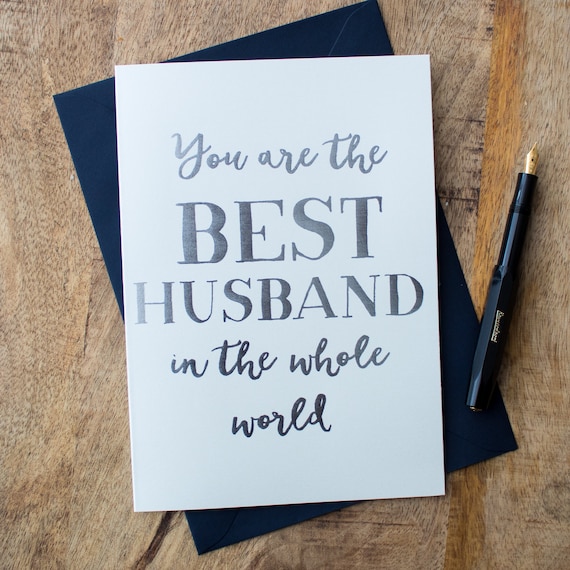 You are the
BEST
HUSBAND
in the whole
world